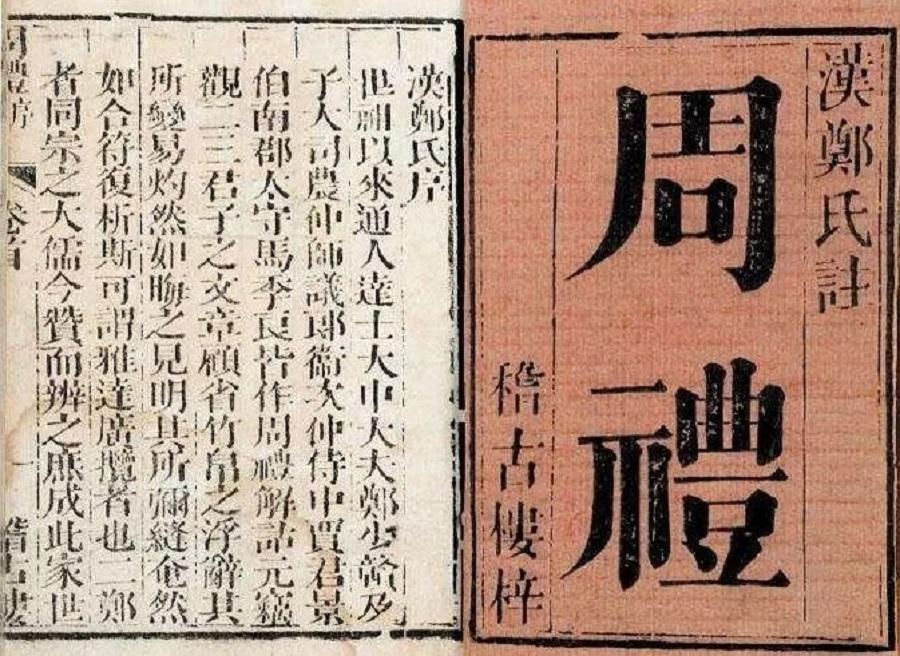 漢鄭氏註
周禮
稽古樓梓
漢鄭氏序
世祖以來通人達士大中大夫鄭少贛及
子大司農仲師議郎衞次仲侍中賈君景
伯南郡太守馬季良皆作周禮解詁元竊
觀二三君子之文章顧省竹帛之浮辭其
所變易灼然如晦之見明其所彌縫奄然
如合符復析斯可謂雅達廣攬者也二鄭
者同宗之大儒今贊而辨之庶成此家世
周禮序 卷首 一 稽古樓